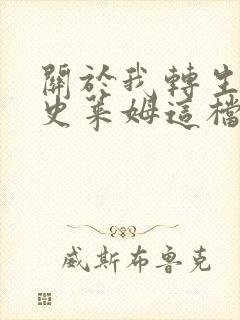 關於我轉生
史萊姆這檔
威斯布魯克